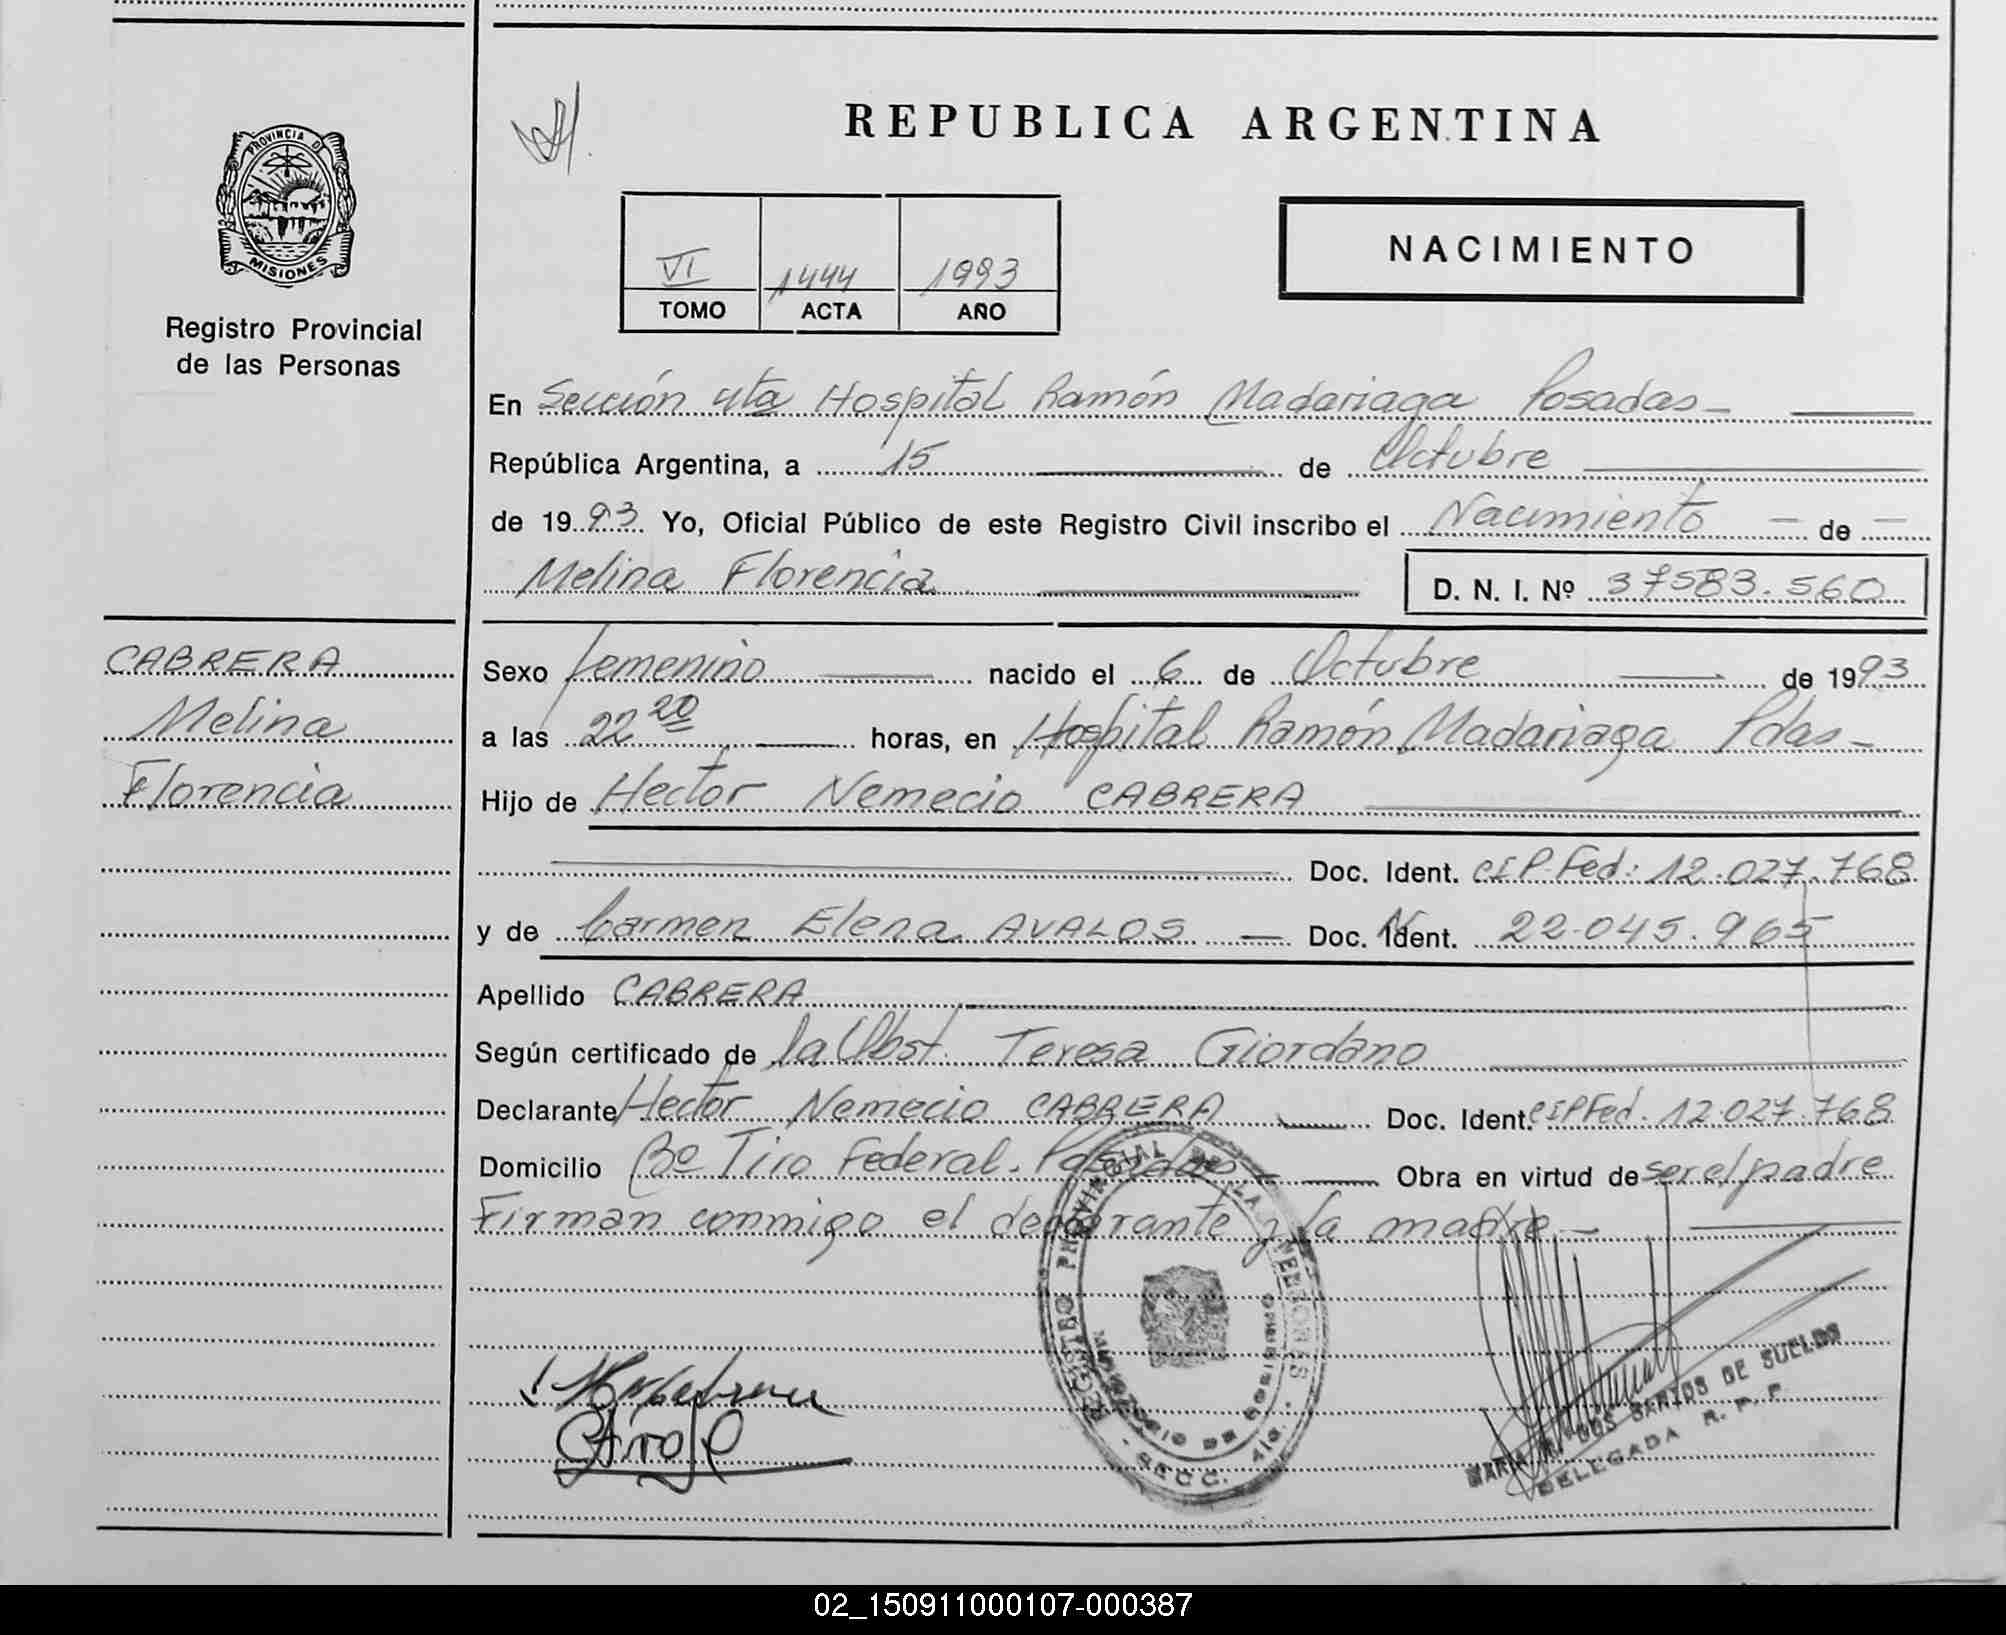 REPUBLICA ARGENTINA
PROVINCIA D
MISIONES
Registro Provincial
de las Personas
VI 1444 1993
TOMO ACTA AÑO
NACIMIENTO
En Sección 4ta Hospital Ramón Madariaga Posadas
República Argentina, a 15 de Octubre
de 1993 Yo, Oficial Público de este Registro Civil inscribo el Nacimiento de
Melina Florencia D. N. I. Nº 37583.560
CABRERA
Melina
Florencia
Sexo femenino nacido el 6 de Octubre de 1993
a las 22 20 horas, en Hospital Ramón Madariaga Pdas
Hijo de Hector Nemecio CABRERA
Doc. Ident. CIP.Fed: 12.027.768
y de Carmen Elena AVALOS Doc. Ident. 22.045.965
Apellido CABRERA
Según certificado de la Obst. Teresa Giordano
Declarante Hector Nemecio CABRERA Doc. Ident. CIPFed. 12.027.768
Domicilio Bº Tiro Federal. Posadas Obra en virtud de ser el padre
Firman conmigo el declarante y la madre
REGISTRO PROVINCIAL DE LAS
SECC. 4ta.
MARIA DOS SANTOS DE SUELDO
DELEGADA R. P. P.
02_150911000107-000387